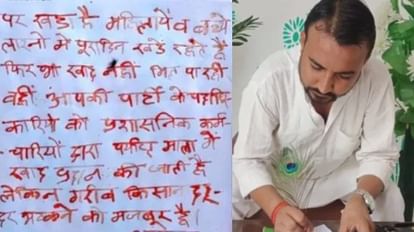 पर खडा है महिलायें व बच्चे
लाइनो में पूरादिन खडे रहते हैं
फिर भी खाद नहीं मिल पा रही
वहीं आपकी पार्टी के पदाधि-
कारियों को प्रशासनिक कर्म-
-चारियों द्वारा पर्याप्त मात्रा में
खाद प्रदान की जाती है
लेकिन गरीब किसान दर-
दर भटकने को मजबूर है।